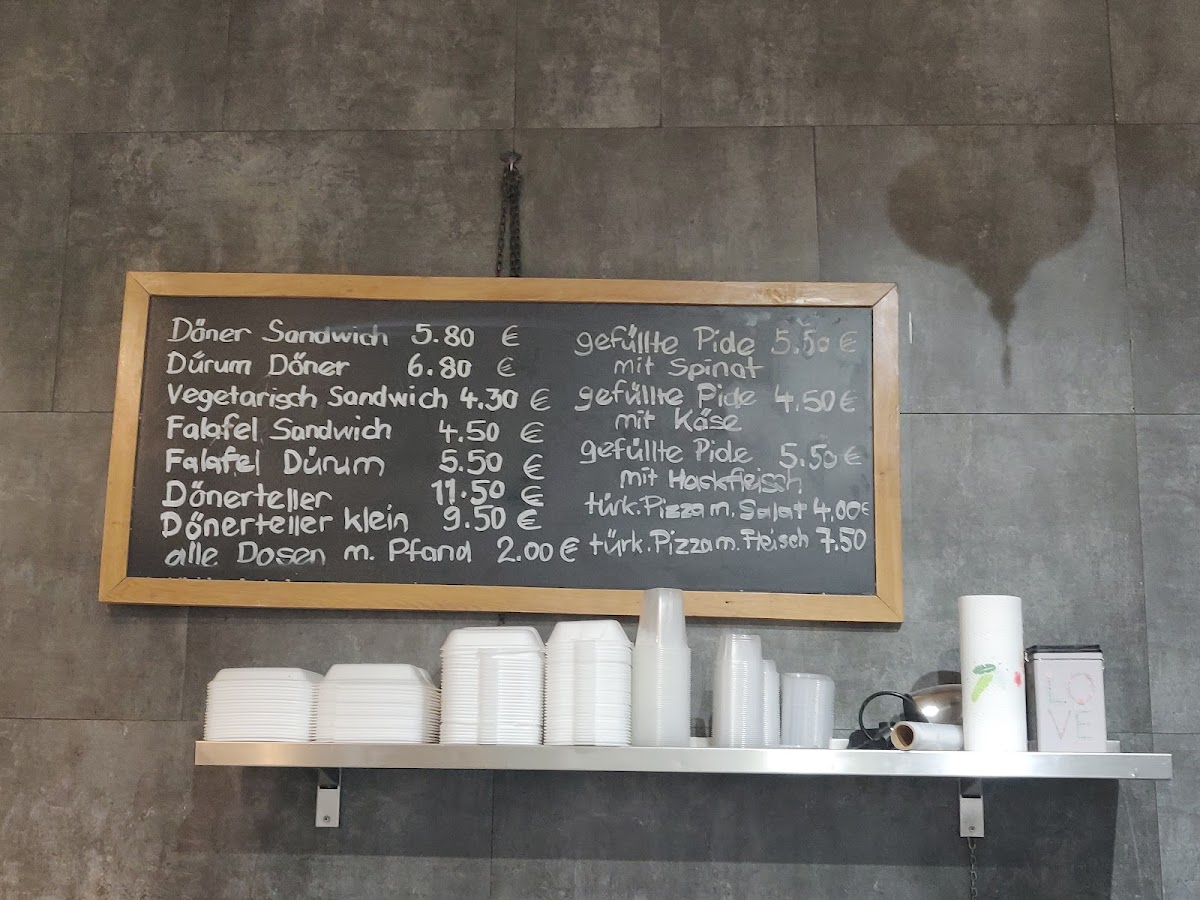 Döner Sandwich 5.80 €
Dürum Döner 6.80 €
Vegetarisch Sandwich 4.30 €
Falafel Sandwich 4.50 €
Falafel Dürum 5.50 €
Dönerteller 11.50 €
Dönerteller klein 9.50 €
alle Dosen m. Pfand 2.00 €
gefüllte Pide 5.50 €
mit Spinat
gefüllte Pide 4.50 €
mit Käse
gefüllte Pide 5.50 €
mit Hackfleisch
türk. Pizza m. Salat 4.00 €
türk. Pizza m. Fleisch 7.50
LO
VE